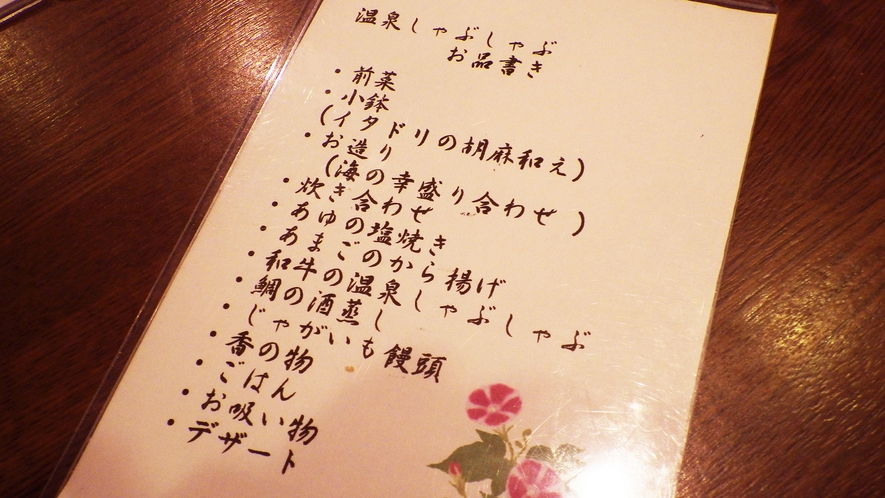 温泉しゃぶしゃぶ
お品書き
・前菜
・小鉢
(イタドリの胡麻和え)
・お造り
(海の幸盛り合わせ)
・炊き合わせ
・あゆの塩焼き
・あまごのから揚げ
・和牛の温泉しゃぶしゃぶ
・鯛の酒蒸し
・じゃがいも饅頭
・香の物
・ごはん
・お吸い物
・デザート